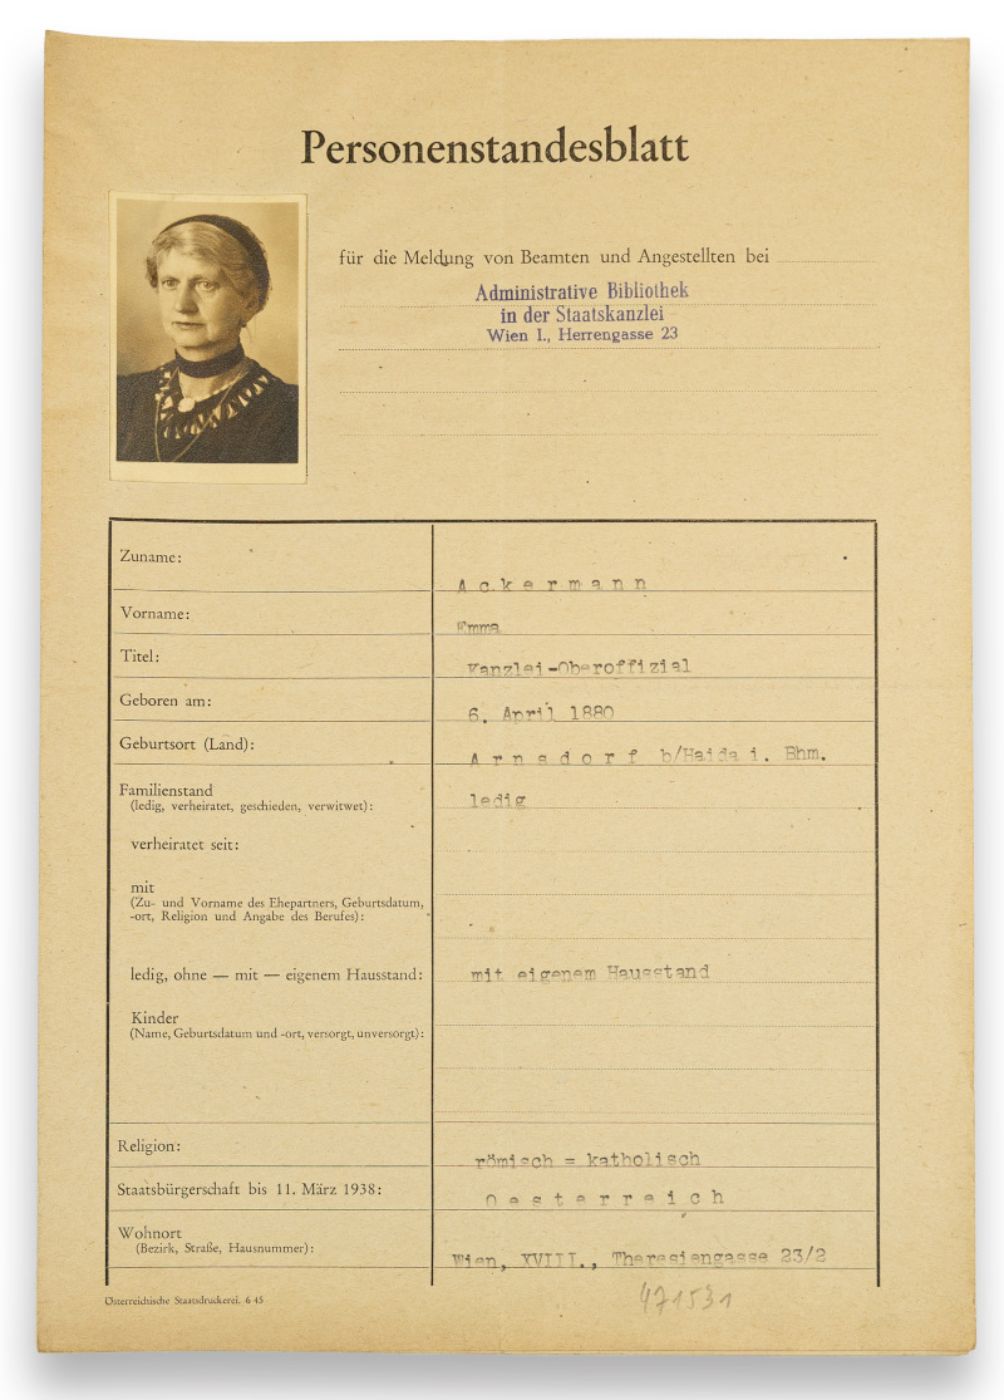 Personenstandesblatt
für die Meldung von Beamten und Angestellten bei
Administrative Bibliothek
in der Staatskanzlei
Wien I., Herrengasse 23
Zuname:
Ackermann
Vorname:
Emma
Titel:
Kanzlei-Oberoffizial
Geboren am:
6. April 1880
Geburtsort (Land):
Arnsdorf b/Haida i. Bhm.
Familienstand
(ledig, verheiratet, geschieden, verwitwet):
ledig
verheiratet seit:
mit
(Zu- und Vorname des Ehepartners, Geburtsdatum,
-ort, Religion und Angabe des Berufes):
ledig, ohne — mit — eigenem Hausstand:
mit eigenem Hausstand
Kinder
(Name, Geburtsdatum und -ort, versorgt, unversorgt):
Religion:
römisch = katholisch
Staatsbürgerschaft bis 11. März 1938:
Oesterreich
Wohnort
(Bezirk, Straße, Hausnummer):
Wien, XVIII., Theresiengasse 23/2
Österreichische Staatsdruckerei. 6 45
471531